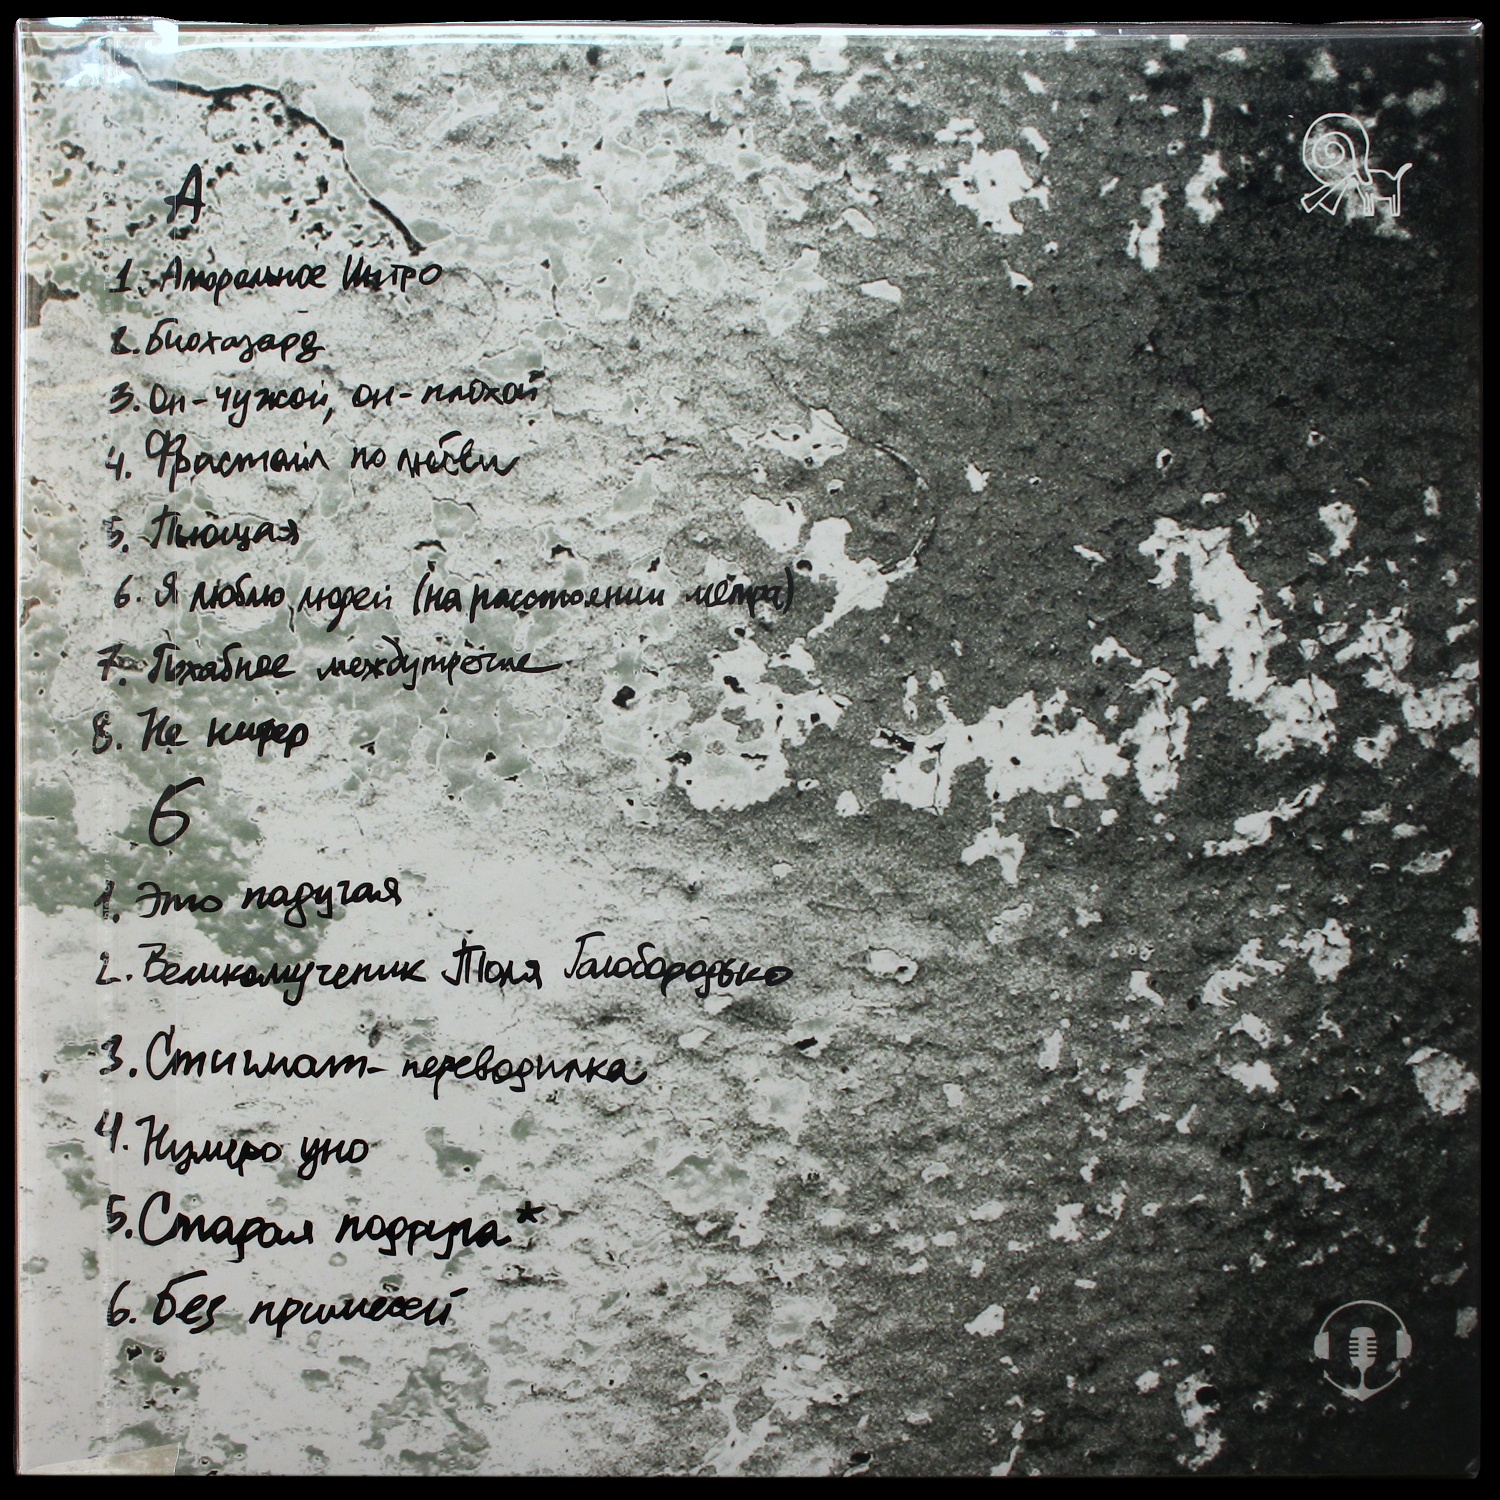 А
1. Аморальное Интро
2. Биохазард
3. Он-чужой, он-плохой
4. Фристайл по любви
5. Пьющая
6. Я люблю людей (на расстоянии метра)
7. Похабное междутречие
8. Не нигер
Б
1. Это падучая
2. Великомученик Толя Голобородько
3. Стигмат-переводилка
4. Нумеро уно
5. Старая подруга*
6. Без примесей